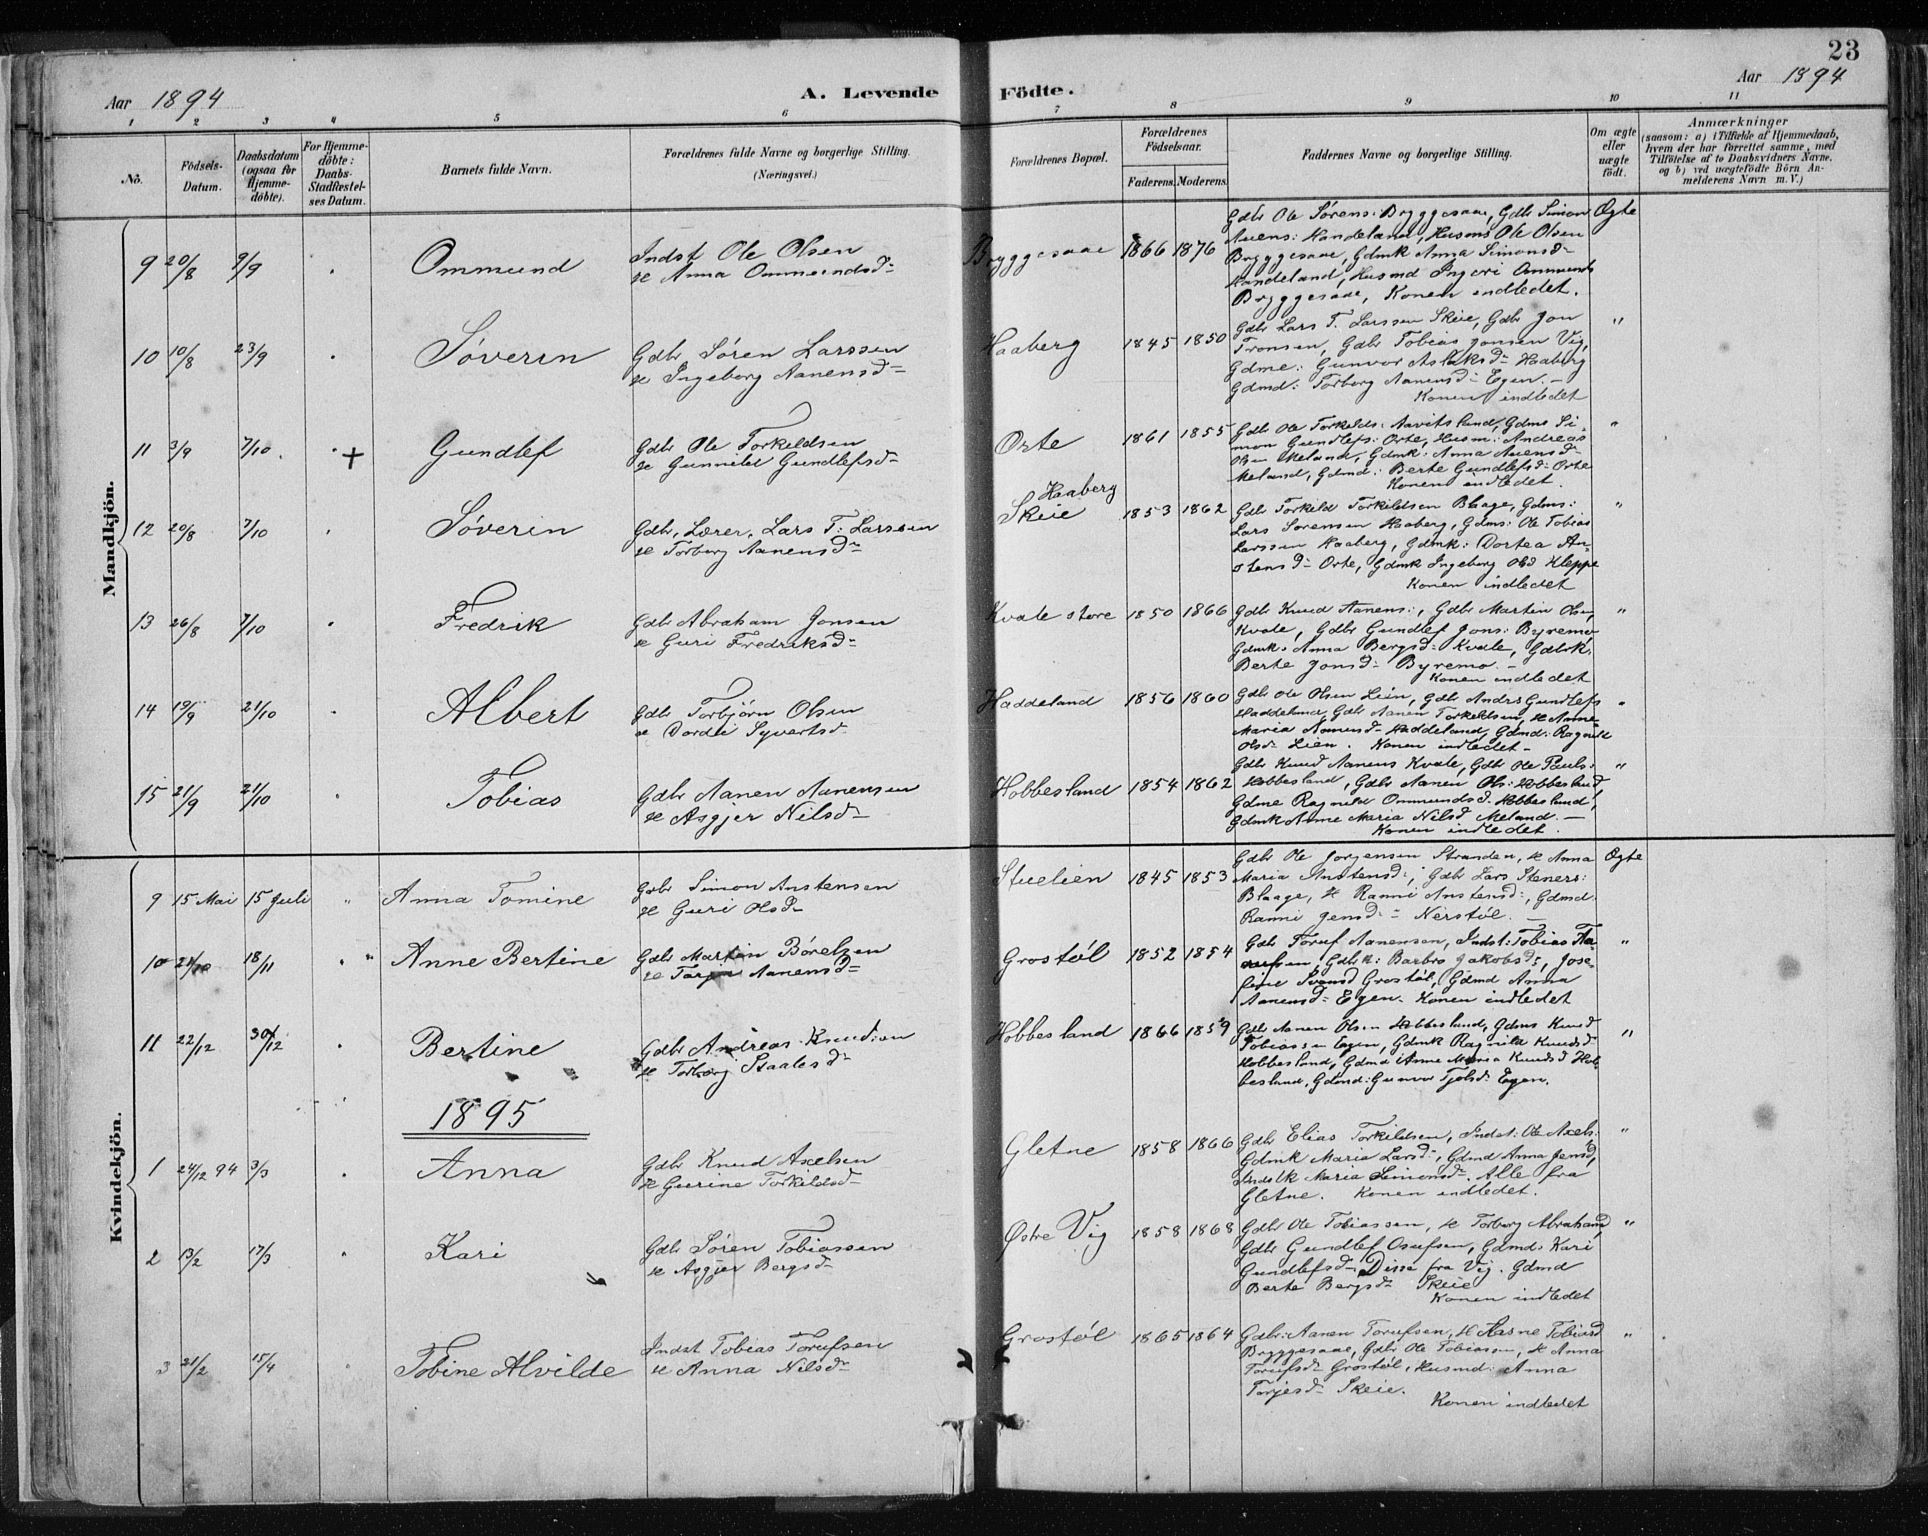 23
Aar 1894
A. Levende Födte.
Aar 1894
1 2 3 4 5 6 7 8 9 10 11
No.
Födsels-
Datum.
Daabsdatum
(ogsaa for
Hjemme-
döbte).
For Hjemme-
döbte:
Daabs-
Stadfæstel-
ses Datum.
Barnets fulde Navn.
Forældrenes fulde Navne og borgerlige Stilling.
(Næringsvei.)
Forældrenes Bopæl.
Forældrenes
Födselsaar.
Faderens. Moderens.
Faddernes Navne og borgerlige Stilling.
Om ægte
eller
uægte
födt.
Anmærkninger
(saasom: a) i Tilfælde af Hjemmedaab,
hvem der har forrettet samme, med
Tilföielse af to Daabsvidners Navne,
og b) ved uægtefödte Börn An-
melderens Navn m. V.)
Mandkjön.
9 20/8 9/9 Ommund
Indst Ole Olsen
& Anna Ommundsd
Bryggesaae 1866 1876
Gdbr Ole Sørens: Bryggesaae, Gdbr Simon
Auens: Handeland, Husms Ole Olsen
Bryggesaae, Gdmk Anna Simonsd
Handeland, Husmd Ingeri Ommunds
Bryggesaae, Konen indledet.
Ægte
10 10/8 23/9 Søveren
Gdbr Søren Larssen
& Ingeborg Aanensd
Haaberg 1845 1850
Gdbr Lars T. Larssen Skeie, Gdbr Jon
Tronsen, Gdbr Tobias Jonsen Vig,
Gdme: Gunvor Aslaksd Haaberg
Gdmd: Torborg Aanensd Egen.
Konen indledet
"
11 3/9 7/10 + Gundlef
Gdbr Ole Torkeldsen
& Gunnild Gundlefsd
Orte 1861 1855
Gdbr Ole Torkelds: Aavitsland, Gdms Si-
mon Gundlefs: Orte, Husm: Andreas
Olsen Meland, Gdmk: Anna Auensd
Meland, Gdmd: Berte Gundlefsd Orte
Konen indledet.
"
12 20/8 7/10 Søveren
Gdbr, Lærer, Lars T: Larssen
& Torborg Aanensd
Haaberg
Skeie 1853 1862
Gdbr Torkeld Torkeldsen Blaage, Gdms:
Lars Sørensen Haaberg, Gdms: Ole Tobias
Larssen Haaberg, Gdmk: Dortea An-
stensd Orte, Gdmk Ingeborg Olsd Kleppe
Konen indledet
"
13 26/8 7/10 Fredrik
Gdbr Abraham Jonsen
& Guri Fredriksd
Kvale store 1850 1866
Gdbr Knud Aanens:, Gdbr Martin Olsen
Kvale, Gdbr Gundlef Jons: Byremo
Gdmk: Anna Bergsd Kvale, Gdbrk.
Berte Jonsd Byremo.
Konen indledet
"
14 19/9 21/10 Albert
Gdbr Torbjörn Olsen
& Dordi Syvertsd
Haddeland 1856 1860
Gdbr Ole Olsen Lein, Gdbr Anders Gundlefs
Haddeland, Gdbr Aanen Torkeldsen, & Anne
Maria Aanensd Haddeland, Gdmd: Ragnild
Olsd Lien. Konen indledet
"
15 21/9 21/10 Tobias
Gdbr Aanen Aanensen
& Asgjer Nilsd
Hobbesland 1854 1862
Gdbr Knud Aanens Kvale, Gdbr Ole Pauls:
Hobbesland, Gdbr Aanen Ols: Hobbesland
Gdme Ragnild Ommundsd Hobbesland,
Gdmk Anne Maria Nilsd Meland.
Konen indledet.
"
Kvindekjön.
9 15 Mai 15 Juli " Anna Tomine
Gdbr Simon Anstensen
& Guri Olsd
Stuelien 1845 1853
Gdbr Ole Jorgensen Stranden, & Anna
Maria Anstensd, Gdbr Lars Steners:
Blaage, & Ranni Anstensd, Gdmd
Ranni Jensd Nerstøl.
Ægte
10 21/10 18/11 " Anne Bertine
Gdbr Martin Börelsen
& Tarjer Aanensd
Grostøl 1852 1854
Gdbr Toruf Aanensen, Indst: Tobias To-
rufsen, Gdbk: Barbro Jakobsd, Jose-
fine Svensd Grostøl, Gdmd Anna
Aanensd Egen. Konen indledet
"
11 22/12 30/12 Bertine
Gdbr Andreas Knudsen
& Torborg Staalesd
Hobbesland 1866 1859
Gdbr Aanen Olsen Hobbesland, Gdms Knud
Tobiassen Egen, Gdmk Ragnild Knudsd
Hobbesland, Gdmd Anne Maria Knudsd Hob-
besland, Gdmd: Gunvor Tjelsd Egen.
"
1895
1 24/12 94 3/3 Anna
Gdbr Knud Axelsen
& Gurine Torkildsd
Gletne 1858 1866
Gdbr Elias Torkildsen, Indst: Ole Axels:
Gdmk Maria Larsd, Gdmd Anna Jensd,
Indstk Maria Simonsd. Alle fra
Gletne. Konen indledet.
"
2 13/2 17/3 Kari
Gdbr Søren Tobiassen
& Asgjer Bergsd
Østre Vig 1858 1868
Gdbr Ole Tobiassen, & Torborg Abrahamd,
Gdbr Gundlef Osufsen, Gdmd: Kari
Gundlefsd: Disse fra Vig. Gdmd
Berte Bergsd Skeie
Konen indledet
"
3 21/2 15/4 Tobine Alvilde
Indst Tobias Torufsen
& Anna Nilsd
Grostøl 1865 1864
Gdbr: Aanen Torufsen, & Aasne Tobiasd
Bryggesaae, Gdbr Ole Tobiassen, & Anna
Torufsd Grostøl, Husmd: Anna
Torjesd Skeie.
Konen indledet
"